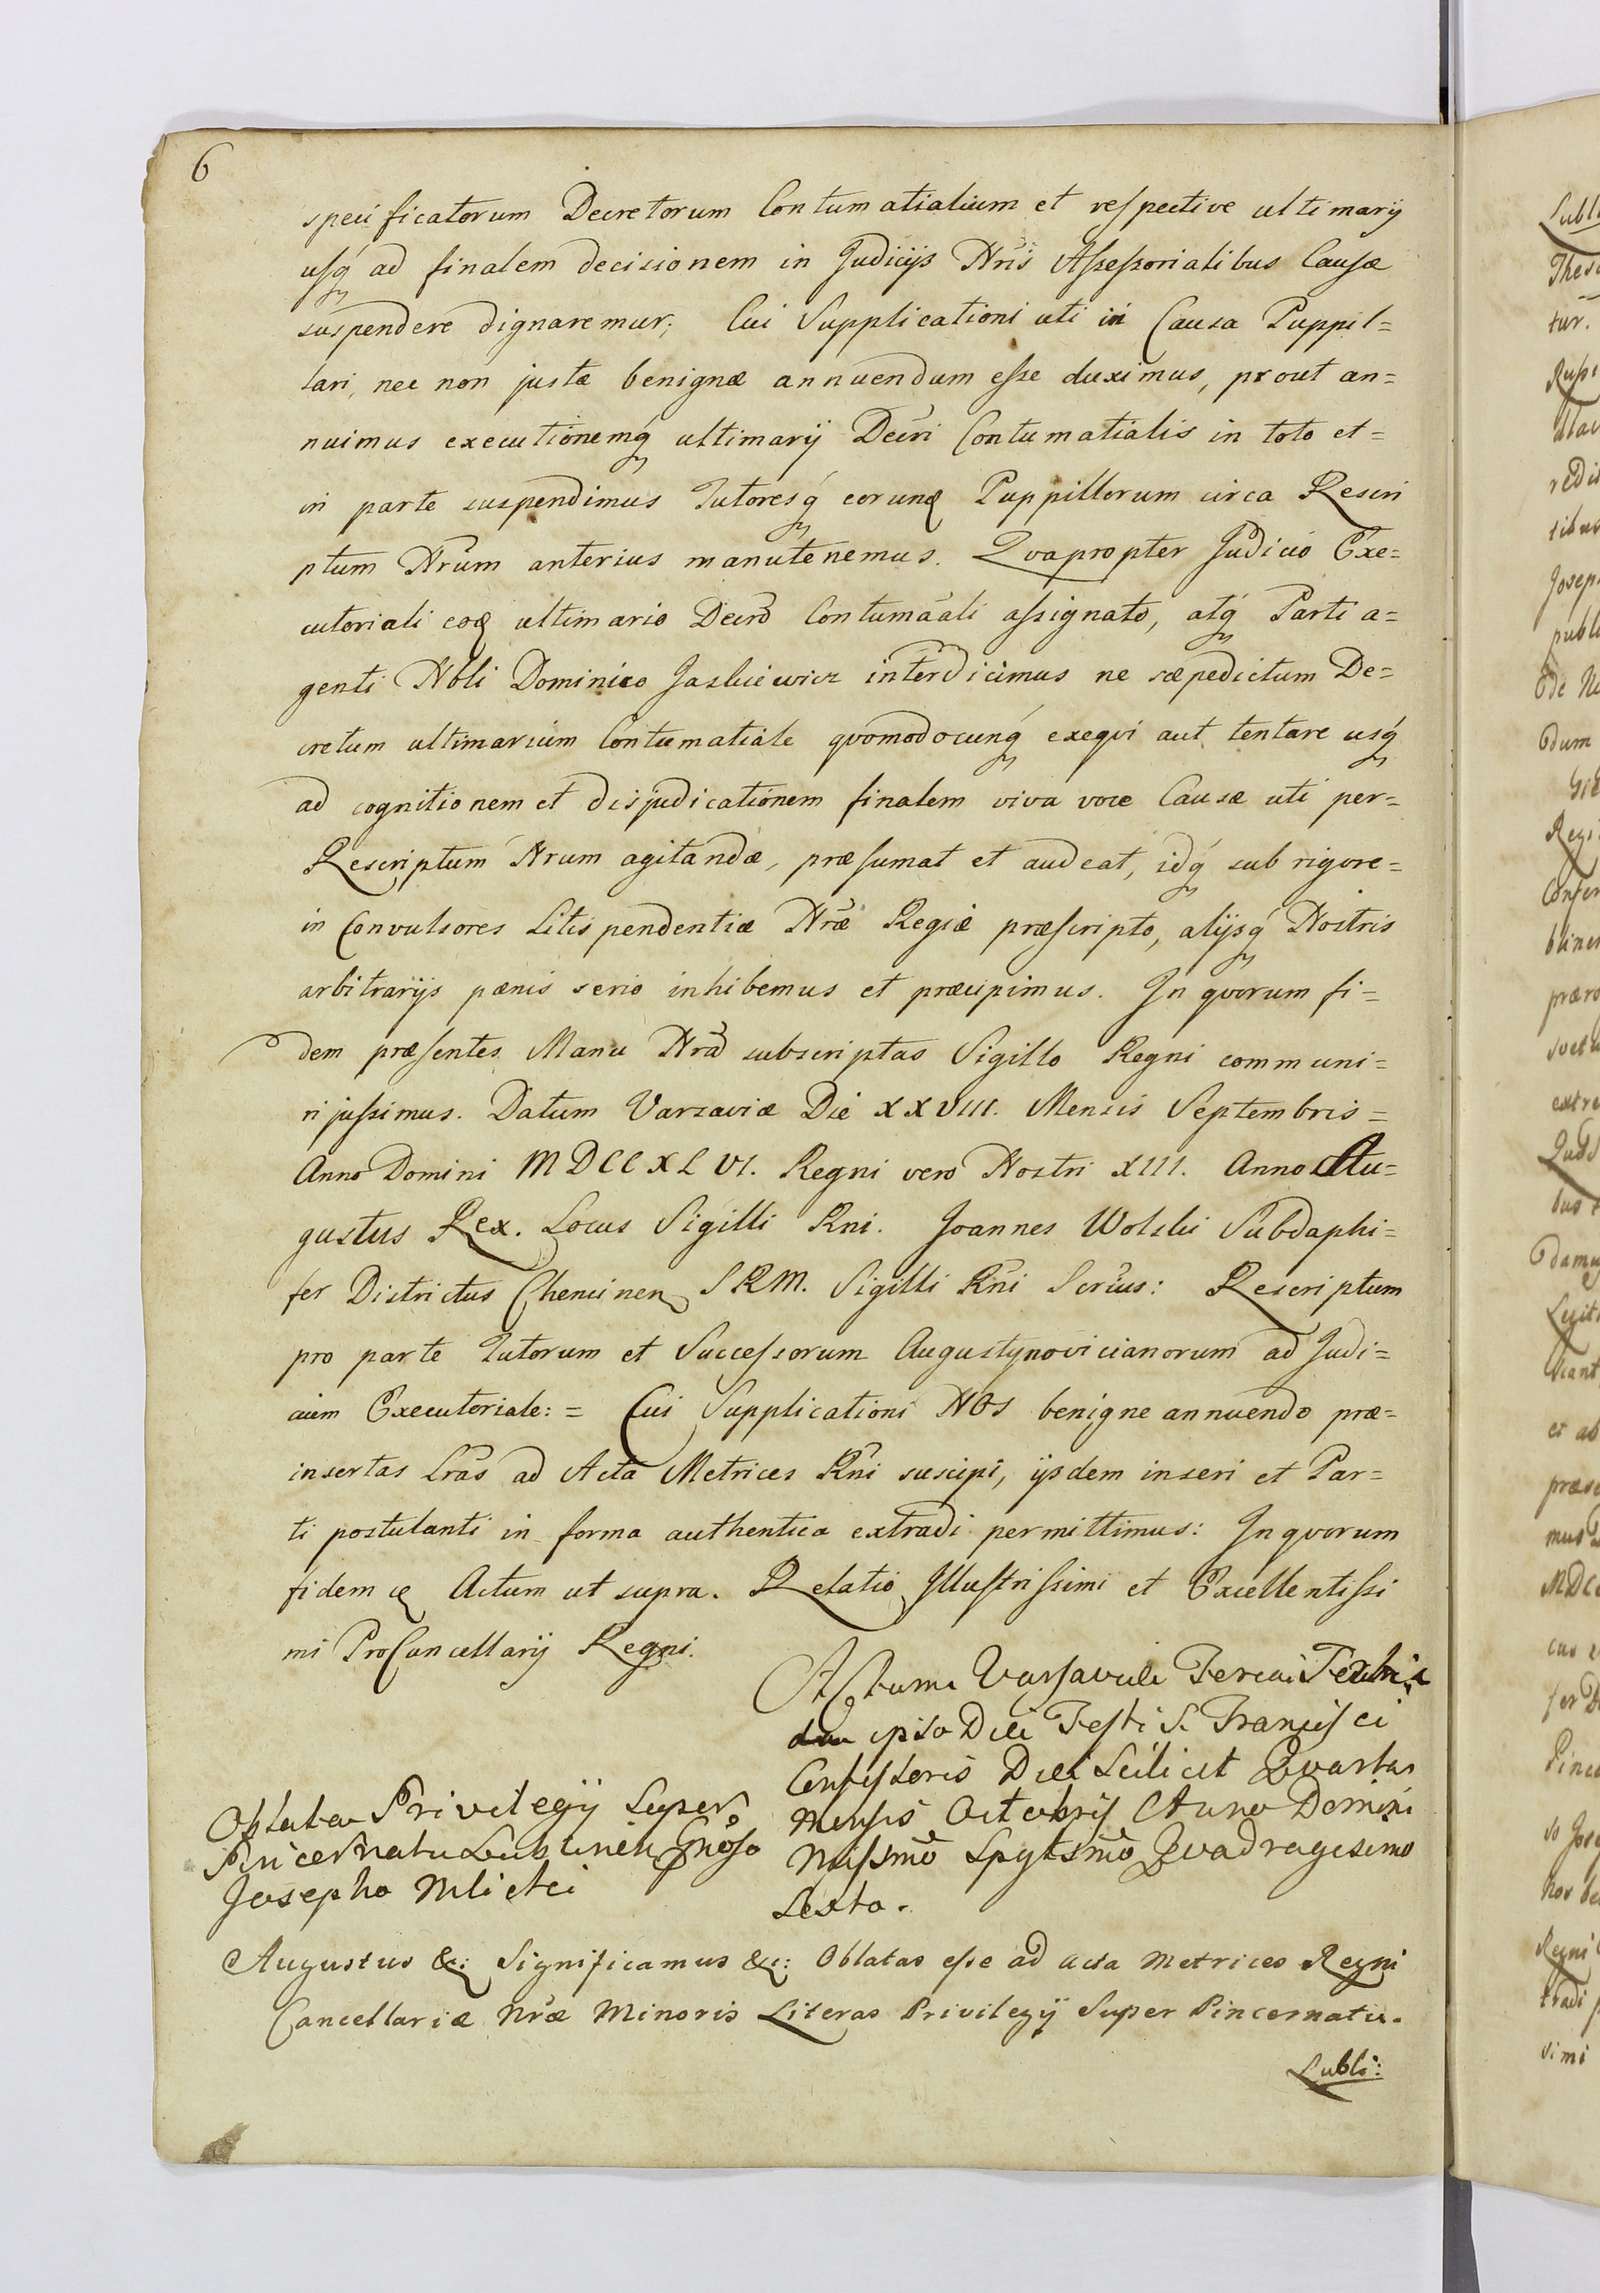 6
specificatorum Decretorum Contumatialium et respective ultimarij
usq́ ad finalem decisionem in Judicijs Nris Assessorialibus Causæ
suspendere dignaremur; Cui Supplicationi uti in Causa Puppil=
lari, nec non justæ benignæ annuendum esse duximus, prout an=
nuimus executionemq́ ultimarij Decri Contumatialis in toto et=
in parte suspendimus Tutoresq́ eorund Puppillorum circa Rescri
ptum Nrum anterius manutenemus. Qvapropter Judicio Exe=
cutoriali eod ultimario Decro Contumaali assignato, atq́ Parti a=
genti Nbli Dominico Jaskiewicz interdicimus ne sæpedictum De=
cretum ultimarium Contumatiale qvomodocunq́ exeqvi aut tentare usq́
ad cognitionem et disjudicationem finalem viva voce Causæ uti per=
Rescriptum Nrum agitandæ, præsumat et audeat, idq́ sub rigore=
in Convulsores Litis pendentiæ Nræ Regiæ præscripto, alijsq́ Nostris
arbitrarijs pænis serio inhibemus et præcipimus. In qvorum fi=
dem præsentes Manu Nra subscriptas Sigillo Regni communi=
ri jussimus. Datum Varsaviæ Die XXVIII. Mensis Septembris=
Anno Domini MDCCXLVI. Regni vero Nostri XIII. Anno Au=
gustus Rex. Locus Sigilli Rni. Joannes Wolski Subdaphi=
fer Districtus Chencinen SRM. Sigilli Rni Scrius: Rescriptum
pro parte Tutorum et Successorum Augustynovicianorum ad Judi=
cium Executoriale: = Cui Supplicationi NOS benigne annuendo præ=
insertas Lras ad Acta Metrices Rni suscipi, ijsdem inseri et Par=
ti postulanti in forma authentica extradi permittimus: In qvorum
fidem Actum ut supra. Relatio Illustrissimi et Excellentissi
mi ProCancellarij Regni.
Actum Varsaviæ Feria Tertia
ipso Die Festi S. Francisci
Confessoris Die Scilicet Qvarta
Mensis Octobris Anno Domini
Millsmo Sptgtsmo Qvadragesimo
Sexto.
Oblata Privilegij Super
Pincernatu Lublinen Gnoso
Josepho Mlicki
Augustus &c: Significamus &c: Oblatas esse ad acta Metrices Regni
Cancellariæ Nræ Minoris Literas Privilegij Super Pincernatu.
Lubli: